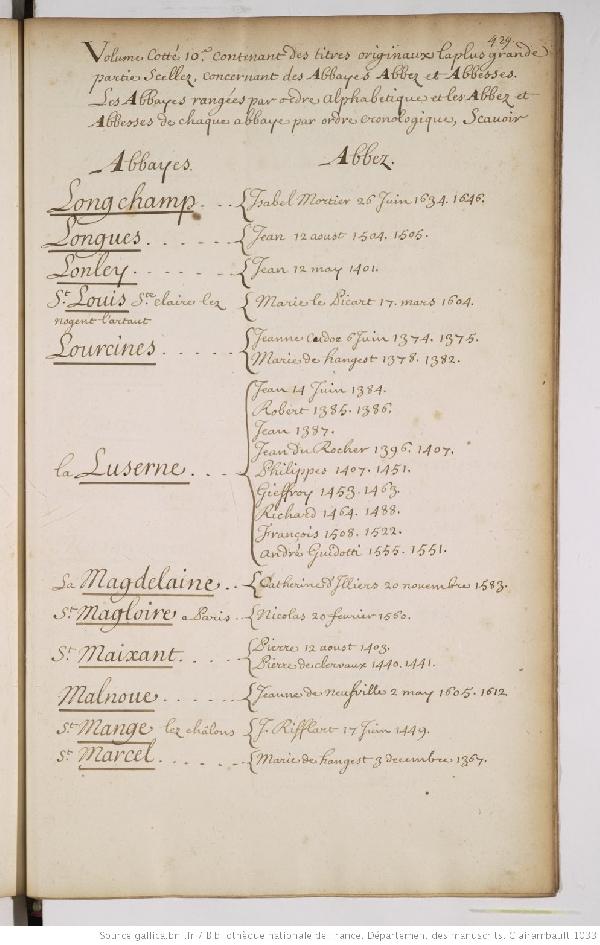 429.
Volume Cotté 10.e contenant des titres originaux la plus grande
partie Scellez, concernant des Abbayes Abbez et Abbesses.
Les Abbayes rangées par ordre alphabetique et les Abbez et
Abbesses de chaque abbaye par ordre cronologique, Scavoir
Abbayes. Abbez.
Longchamp . . . Isabel Mortier 26 Juin 1634. 1646.
Longues . . . . . . Jean 12 aoust 1504. 1505.
Lonley . . . . . . . Jean 12 may 1401.
St. Louis Ste. claire lez Marie le Picart 17. mars 1604.
nogent l'artaut
Lourcines . . . . . Jeanne 6 Juin 1374. 1375.
Marie de hangest 1378. 1382.
Jean 14 Juin 1384.
Robert 1385. 1386.
Jean 1387.
Jean Du Rocher 1396. 1407.
la Luserne . . . . Philippes 1407. 1451.
Gieffroy 1453. 1463.
Richard 1464. 1488.
François 1508. 1522.
andré Guidotti 1555. 1551.
La Magdelaine . . Catherine d'Illiers 20 novembre 1583.
St. Magloire a Paris . . Nicolas 20 fevrier 1560.
St. Maixant . . . . Pierre 12 aoust 1403.
Pierre de clervaux 1440. 1441.
Malnoue . . . . . Jeanne de Neufville 2 may 1605. 1612
St. Mange lez châlons J. Rifflart 17 Juin 1449.
St. Marcel . . . . . . Marie de hangest 3 decembre 1367.
Source gallica.bnf.fr / Bibliothèque nationale de France. Département des manuscrits. Clairambault 1033